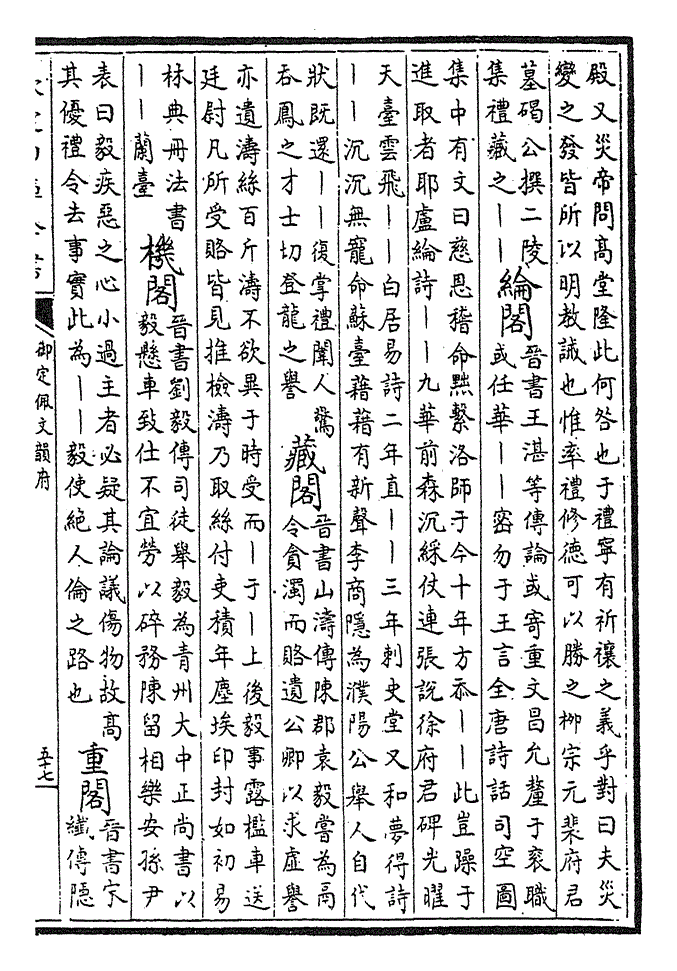 殿又災帝問高堂隆此何咎也于禮寧有祈禳之義乎對曰夫災
變之發皆所以明教誡也惟率禮修德可以勝之栁宗元裴府君
墓碣公撰二陵
集禮藏之丨丨
綸閣
晉書王湛等傳論或寄重文昌允釐于衮職
或任華丨丨密勿于王言全唐詩話司空圖
集中有文曰慈恩稽命黜繫洛師于今十年方忝丨丨此豈躁于
進取者耶盧綸詩丨丨九華前森沉綵仗連張說徐府君碑光曜
天臺雲飛丨丨白居易詩二年直丨丨三年刺史堂又和夢得詩
丨丨沉沉無寵命蘇臺藉藉有新聲李商隱為濮陽公舉人自代
狀既還丨丨復掌禮闈人驚
吞鳳之才士切登龍之譽
藏閣
晉書山濤傳陳郡袁毅嘗為鬲
令貪濁而賂遺公卿以求虛譽
亦遺濤絲百斤濤不欲異于時受而丨于丨上後毅事露檻車送
廷尉凡所受賂皆見推檢濤乃取絲付吏積年塵埃印封如初易
林典冊法書
丨丨蘭臺
機閣
晉書劉毅傳司徒舉毅為青州大中正尚書以
毅懸車致仕不宜勞以碎務陳留相樂安孫尹
表曰毅疾惡之心小過主者必疑其論議傷物故高
其優禮令去事實此為丨丨毅使絕人倫之路也
重閣
晉書宋
纖傳隱
御定佩文韻府
五十七